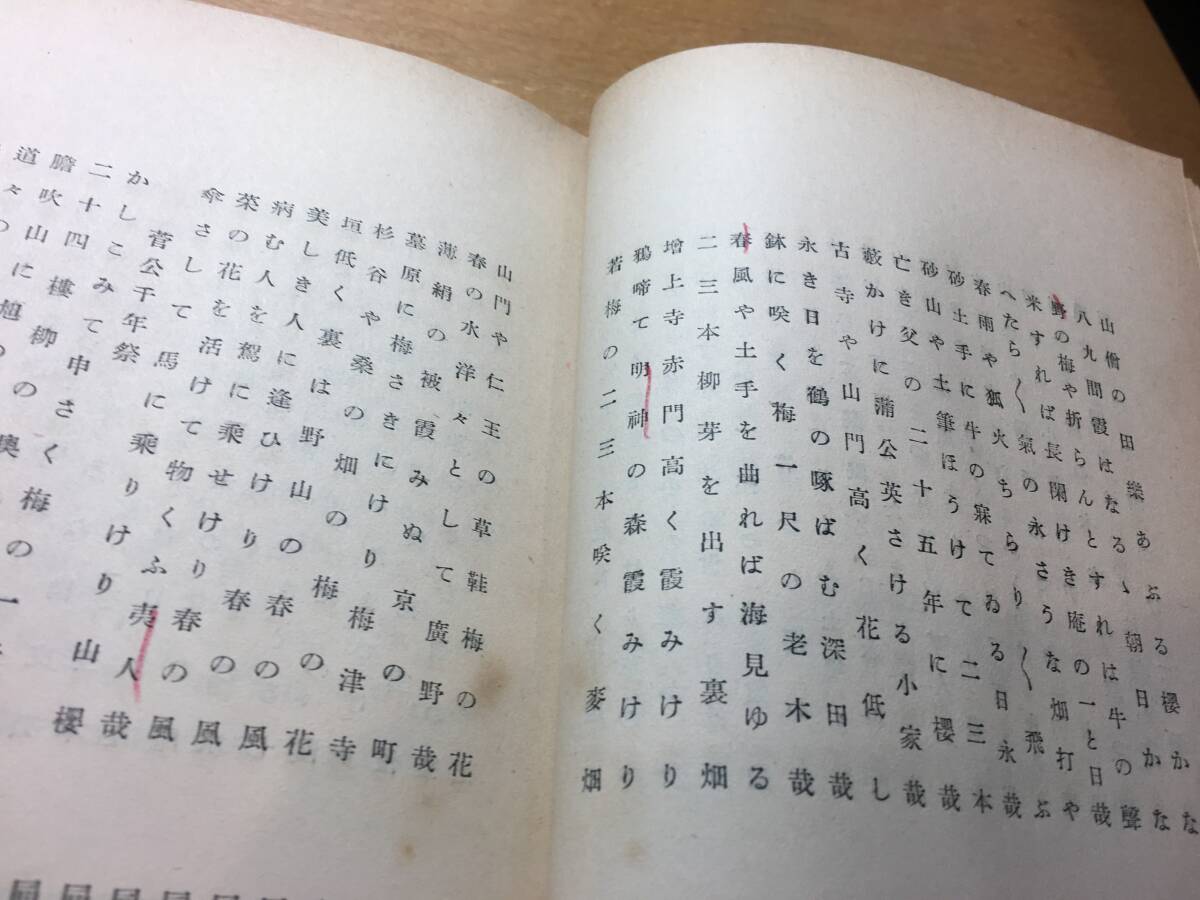 山僧の田樂あぶる櫻かな
八九間霞はなるゝ朝日かな
野の梅や折らんとすれは牛の聲
米すれば長閑けき庵の一と日哉
へたら〱氣の永さうな畑打や
春雨や狐火ちらり〱飛ぶ
砂土手に牛の寐てゐる日永哉
砂山や土筆ほうけて二三本
亡き父の二十五年に櫻哉
藪かけに蒲公英さける小家哉
古寺や山門高く花低し
永き日を鶴の啄ばむ深田哉
鉢に咲く梅一尺の老木哉
春風や土手を曲れば海見ゆる
二三本柳芽を出す裏畑
增上寺赤門高く霞みけり
鴉啼て明神の森霞みけり
若梅の二三本咲く麥畑
山門や仁王の草鞋梅の花
春の水洋々として廣野哉
薄絹の被霞みぬ京の町
墓原に梅さきにけり梅津寺
杉谷や桑の畑の梅の花
垣低く裏は野山の春の風
美しき人に逢ひけり春の風
病む人を駕に乘せけり春の風
菜の花を活けて物くふ夷人哉
傘さして馬に乘りけり山櫻
菅公千年祭
かしこみて申さく梅の一
二十四樓柳の奥の
膽吹山
道々の